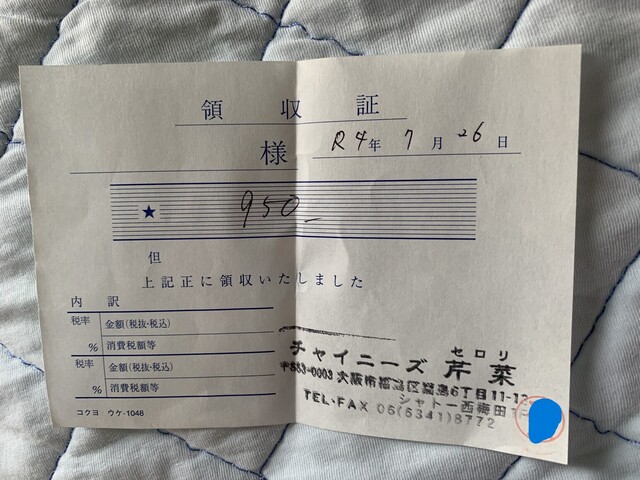 領収証
様 R4年7月26日
★ 950-
但
上記正に領収いたしました
内訳
税率 金額(税抜・税込)
% 消費税額等
税率 金額(税抜・税込)
% 消費税額等
コクヨ ウケ-1048
セロリ
チャイニーズ 芹菜
〒553-0003 大阪市福島区鷺島6丁目11-12
シャトー西梅田
TEL・FAX 06(6341)8772